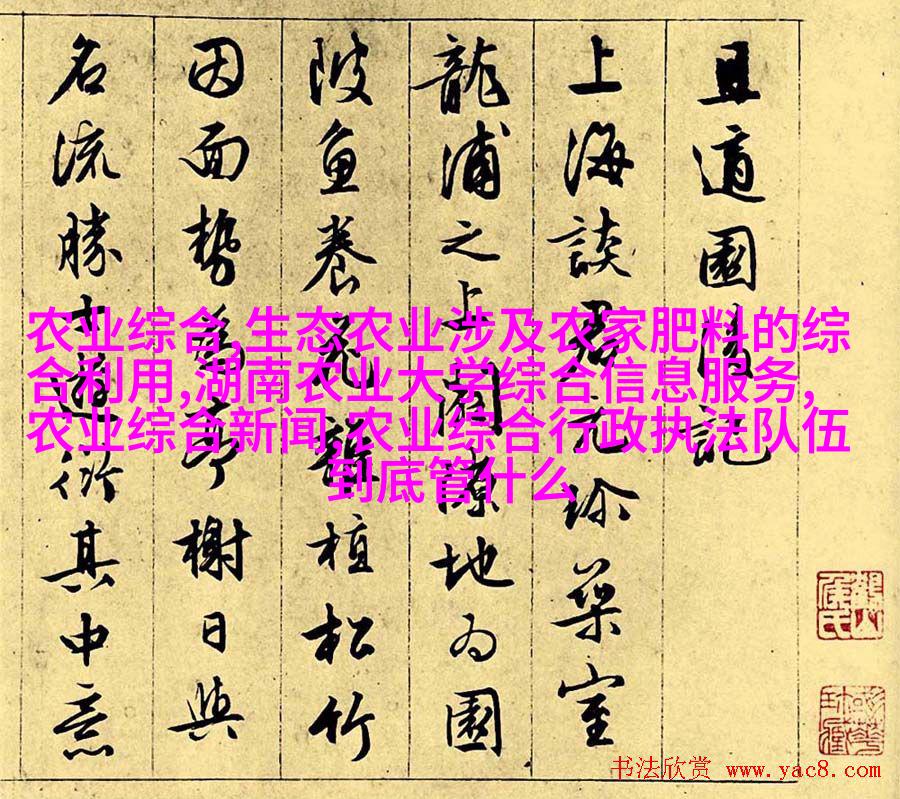 且適園後記
上海談君元珍築室
龍浦之上闢隙地为園
陂魚養花蓺植松竹
因面勢為亭榭日與
名流勝士遊衍其中意
农业综合,生态农业涉及农家肥料的综
合利用,湖南农业大学综合信息服务,
农业综合新闻,农业综合行政执法队伍
到底管什么
书法欣赏 www.yac8.com